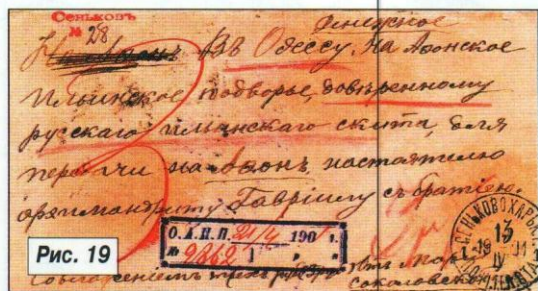 Сеньковъ
№ 28
Денежное
На Аѳонъ Въ Одессу. На Аѳонское
Ильинское подворье, довѣренному
русскаго Ильинскаго скита, для
передачи на Аѳонъ, настоятелю
архимандриту Гавріилу съ братіею.
О.А.Н.П. 21/4 1901 г.
№ 9862
СЕНЬКОВО ХАРЬК.
13
IV
Соколовск
Рис. 19